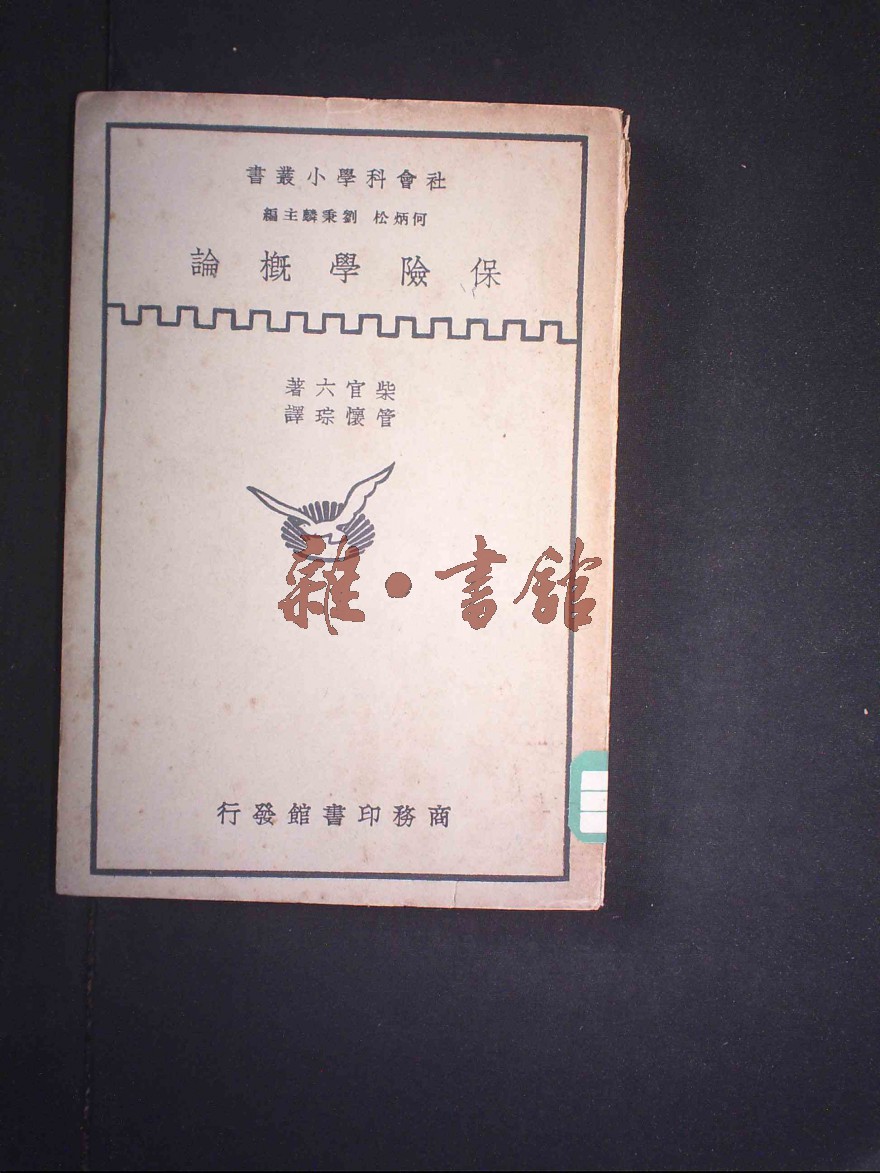 社會科學小叢書
何炳松 劉秉麟主編
保險學概論
柴官六著
管懷琮譯
雜·書館
商務印書館發行